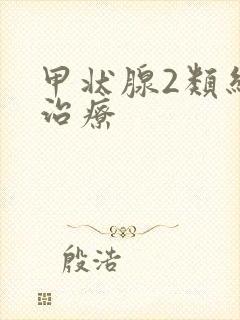 甲状腺2類
治療
殷浩